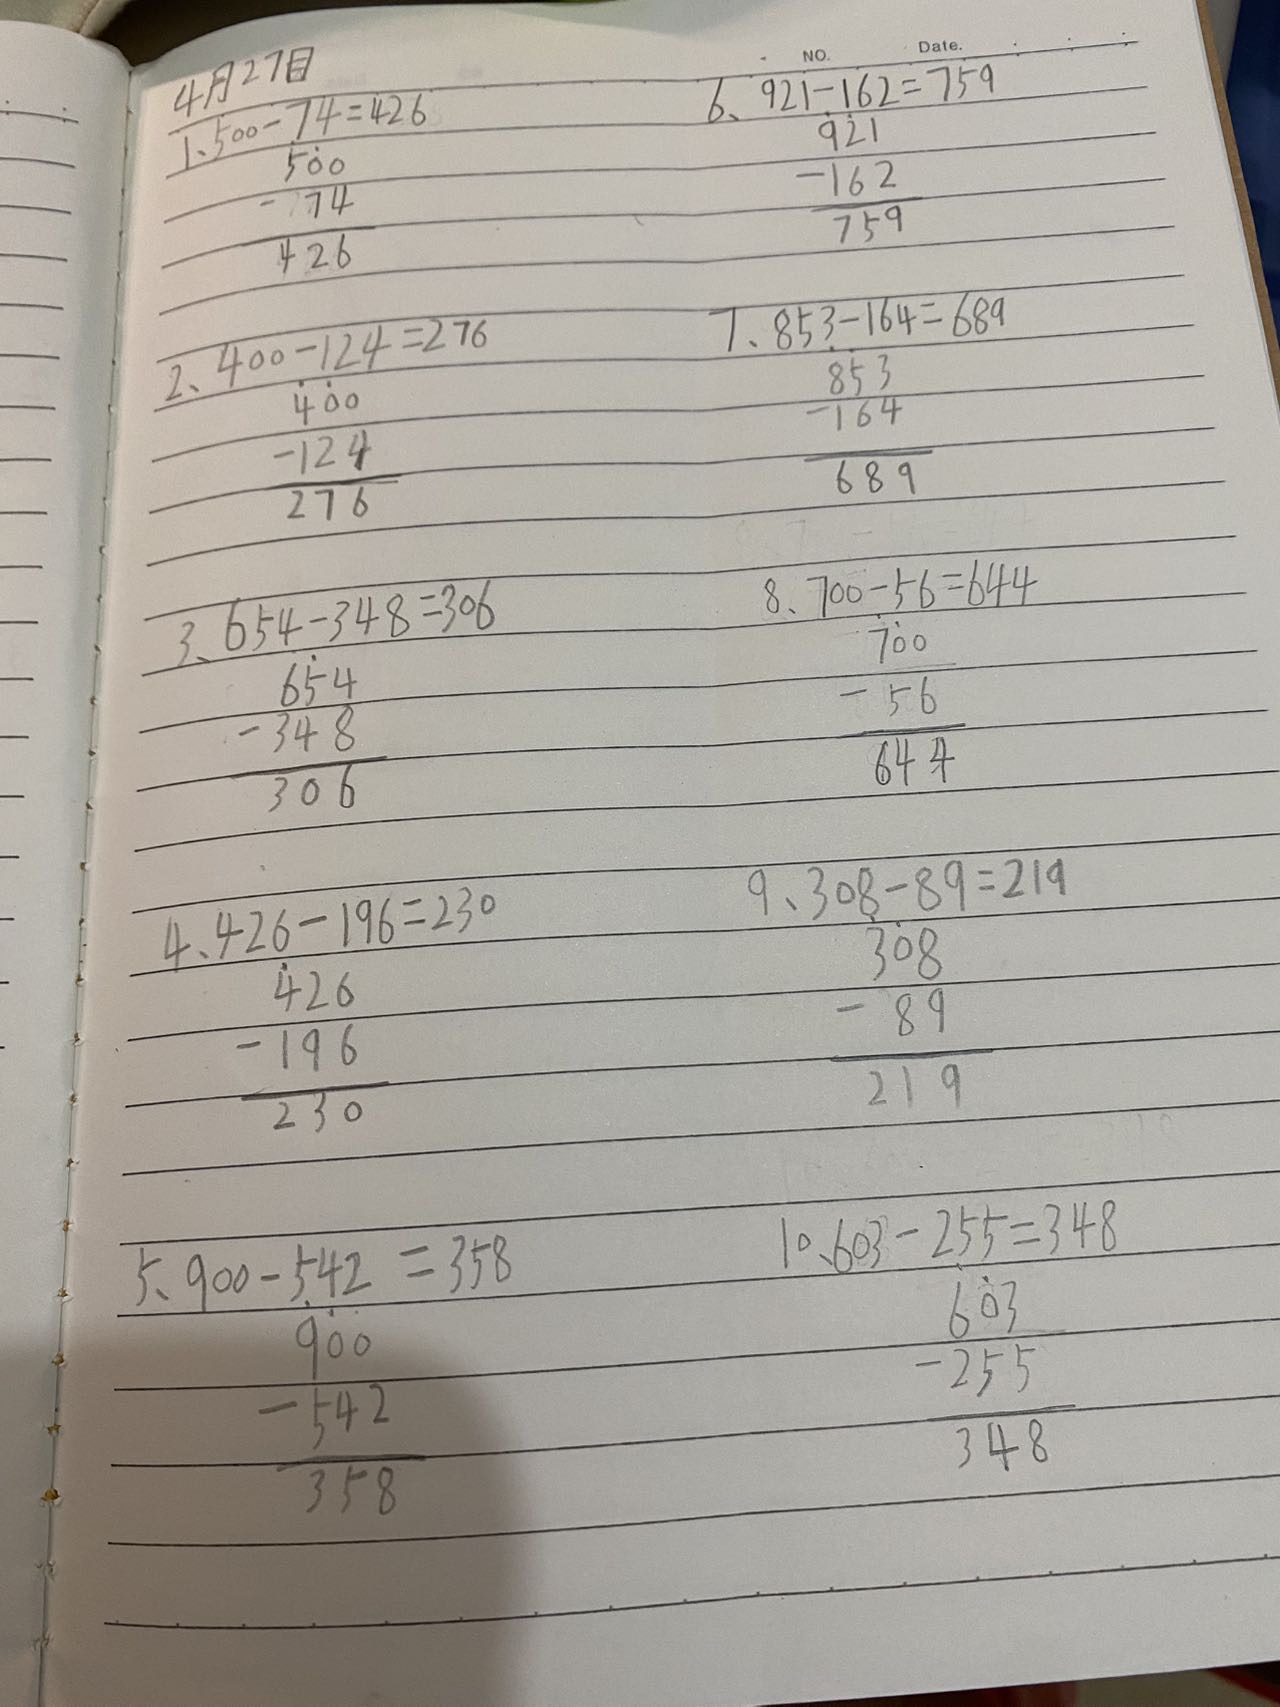 NO.
Date.
4月27日
1、500-74=426
500
-74
426
2、400-124=276
400
-124
276
3、654-348=306
654
-348
306
4、426-196=230
426
-196
230
5、900-542=358
900
-542
358
6、921-162=759
921
-162
759
7、853-164=689
853
-164
689
8、700-56=644
700
-56
644
9、308-89=219
308
-89
219
10、603-255=348
603
-255
348